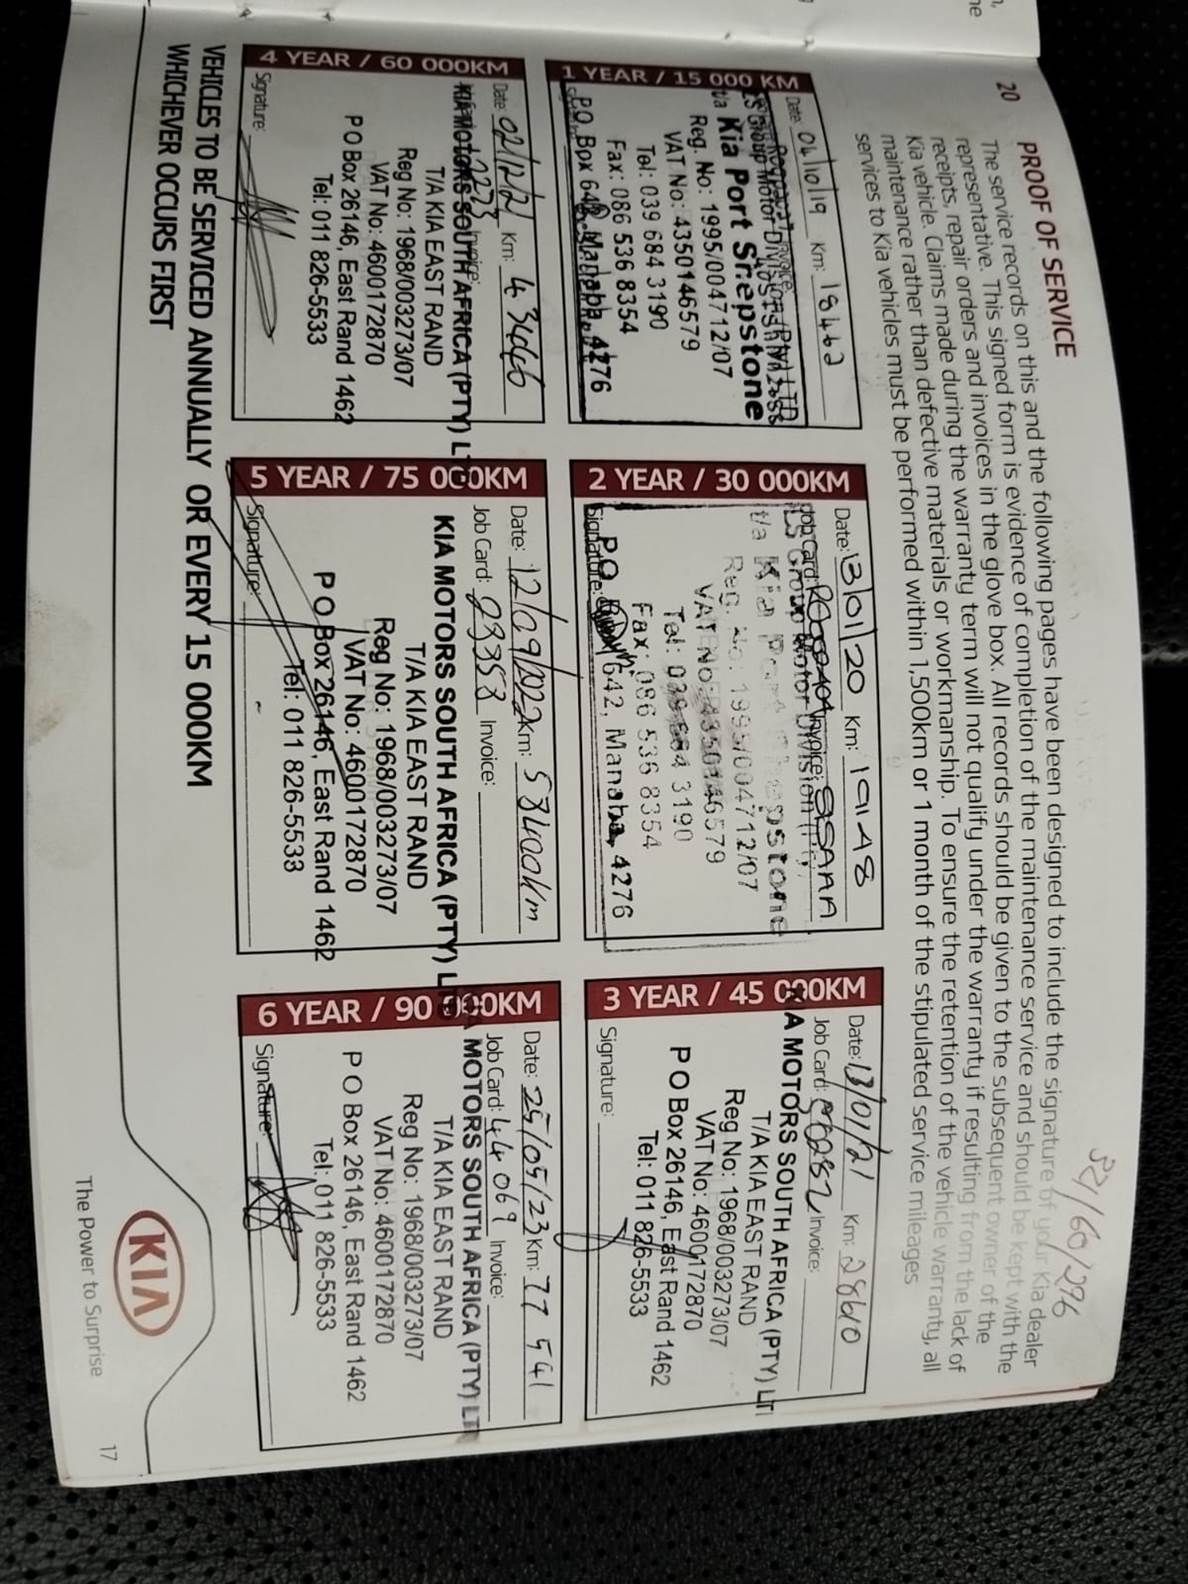 20 PROOF OF SERVICE
The service records on this and the following pages have been designed to include the signature of your Kia dealer
representative. This signed form is evidence of completion of the maintenance service and should be kept with the
receipts, repair orders and invoices in the glove box. All records should be given to the subsequent owner of the
Kia vehicle. Claims made during the warranty term will not qualify under the warranty if resulting from the lack of
maintenance rather than defective materials or workmanship. To ensure the retention of the vehicle warranty, all
services to Kia vehicles must be performed within 1,500km or 1 month of the stipulated service mileages
Date: 04/10/19 Km: 18462
t/a Kia Port Shepstone
Reg. No: 1995/004712/07
VAT No: 4350146579
Tel: 039 684 3190
Fax: 086 536 8354
P.O. Box 642, Manaba, 4276
1 YEAR / 15 000 KM
Date: 13/01/20 Km: 19148
Job Card: Invoice:
t/a Kia Port Shepstone
Reg. No: 1995/004712/07
VAT No: 4350146579
Tel: 039 684 3190
Fax: 086 536 8354
P.O. Box 642, Manaba, 4276
Signature:
2 YEAR / 30 000KM
Date: 13/01/21 Km: 28610
Job Card: Invoice:
KIA MOTORS SOUTH AFRICA (PTY) LTD
T/A KIA EAST RAND
Reg No: 1968/003273/07
VAT No: 4600172870
P O Box 26146, East Rand 1462
Tel: 011 826-5533
Signature:
3 YEAR / 45 000KM
Date: 02/12/21 Km: 43446
KIA MOTORS SOUTH AFRICA (PTY) LTD
T/A KIA EAST RAND
Reg No: 1968/003273/07
VAT No: 4600172870
P O Box 26146, East Rand 1462
Tel: 011 826-5533
Signature:
4 YEAR / 60 000KM
Date: 12/09/2022 Km: 58400km
Job Card: 23353 Invoice:
KIA MOTORS SOUTH AFRICA (PTY) LTD
T/A KIA EAST RAND
Reg No: 1968/003273/07
VAT No: 4600172870
P O Box 26146, East Rand 1462
Tel: 011 826-5533
Signature:
5 YEAR / 75 000KM
Date: 25/05/23 Km: 77 541
Job Card: 44069 Invoice:
KIA MOTORS SOUTH AFRICA (PTY) LTD
T/A KIA EAST RAND
Reg No: 1968/003273/07
VAT No: 4600172870
P O Box 26146, East Rand 1462
Tel: 011 826-5533
Signature:
6 YEAR / 90 000KM
VEHICLES TO BE SERVICED ANNUALLY OR EVERY 15 000KM
WHICHEVER OCCURS FIRST
KIA
The Power to Surprise
17